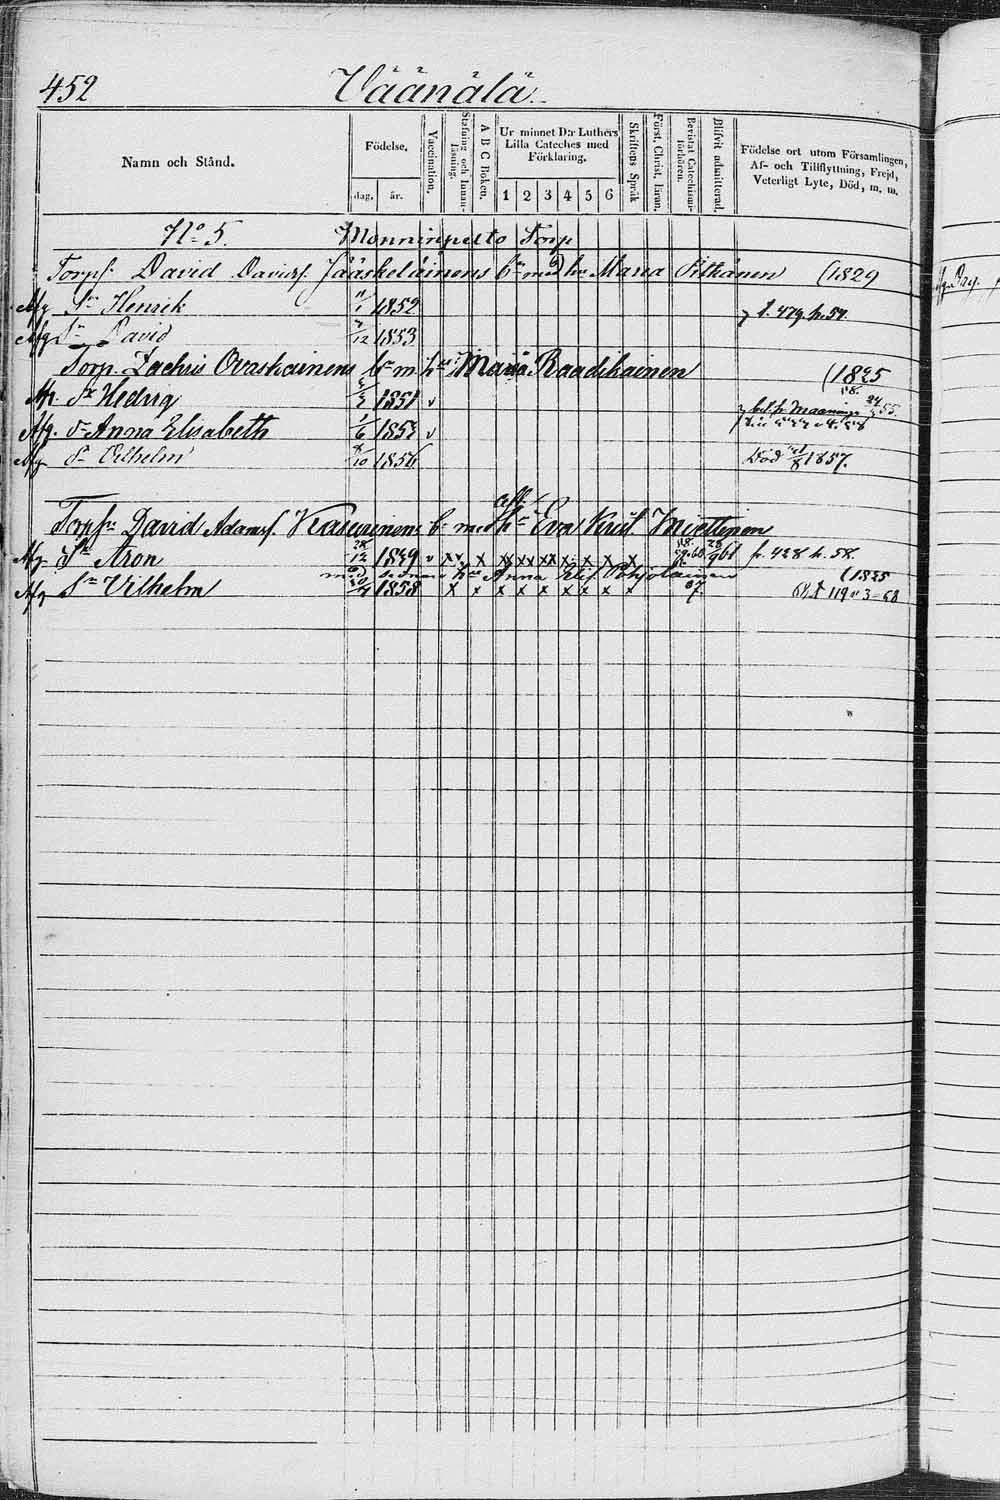 452 Väänälä
Namn och Stånd. Födelse. dag. år. Vaccination. Stafning och Innanläsning. A B C Boken. Ur minnet D:r Luthers Lilla Cateches med Förklaring. 1 2 3 4 5 6 Skriftens Språk Först. Christ. Läran. Bevistat Catechismiförhören. Blifvit admitterad. Födelse ort utom Församlingen, Af- och Tillflyttning, Frejd, Veterligt Lyte, Död, m. m.
No 5. Monninpelto Torp
Torps. David Davidss. Jääskeläinens b:n med hu Maria Pitkänen (1829
Afg Sn Henrik 11/1 1852 f. 479. h. 57.
Afg Sn David /12 1853
Torp. Zachris Ovaskainens b:n m. hu Maria Raadikainen (1825
Afg. Dr Hedvig 1851 v
Afg. Dr Anna Elisabeth 1/6 1853 v
Afg Sn Vilhelm /10 1856 Död /8 1857.
Torpn David Adamss. Kasurinens b:n med afl. hu Eva Krist. Miettinen
Afg. Sn Aron 28/12 1849 v x x x x x x x x x x x f. 428 h. 58.
med hu Anna Elis. Pohjolainen (1825
Afg Sn Vilhelm 1858 x x x x x x x x x 67. 119 3 68